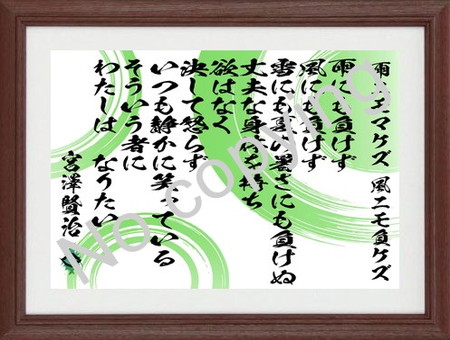 雨ニモマケズ 風ニモ負ケズ
雨にも負けず
風にも負けず
雪にも夏の暑さにも負けぬ
丈夫な身体を持ち
欲はなく
決して怒らず
いつも静かに笑っている
そういう者に
わたしは なりたい
宮澤賢治
No copying